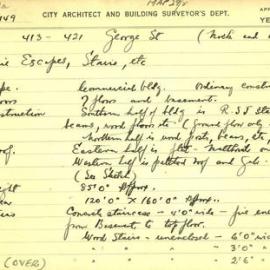 CITY ARCHITECT AND BUILDING SURVEYOR'S DEPT.
149
413 - 421 George St (North end
Escapes, Stairs, etc
Commercial bldg. Ordinary
7 floors and basement.
Southern half of bldg is R.S.J
beams, wood floors etc. (Ground floor only
Northern half is wood posts, beams, etc
Eastern half is flat -
Western half is pitched roof and Galv.
(See Sketch)
85' 0" approx.
120' 0" x 160' 0" approx.
Concrete staircase - 4' 0" wide - fire
from Basement to top floor.
Wood Stairs - unenclosed - 6' 0"
" " 3' 0"
" " 2' 6"
(OVER)